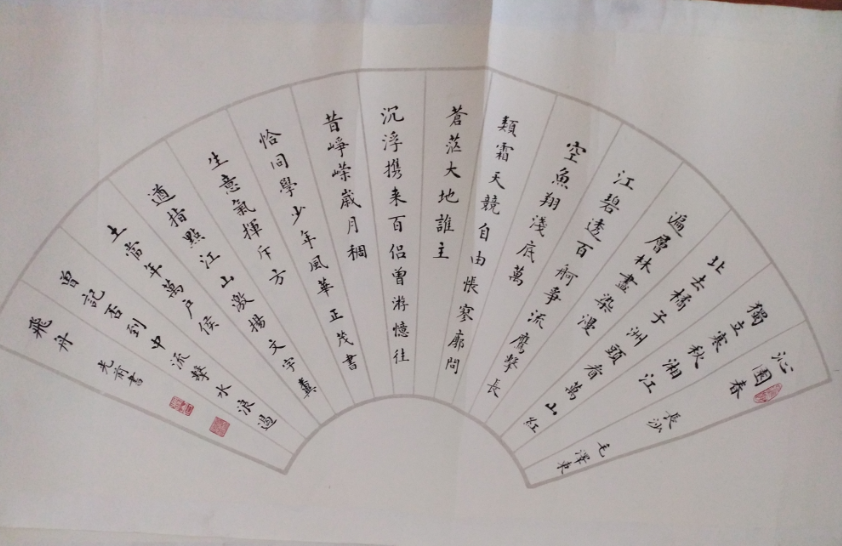 沁園春 長沙 毛澤東
獨立寒秋湘江
北去橘子洲頭看萬山紅
遍層林盡染漫
江碧透百舸爭流鷹擊長
空魚翔淺底萬
類霜天競自由悵寥廓問
蒼茫大地誰主
沉浮携来百侣曾游憶往
昔崢嶸歲月稠
恰同學少年風華正茂書
生意氣揮斥方
遒指點江山激揚文字糞
土當年萬户侯
曾記否到中流擊水浪遏
飛舟